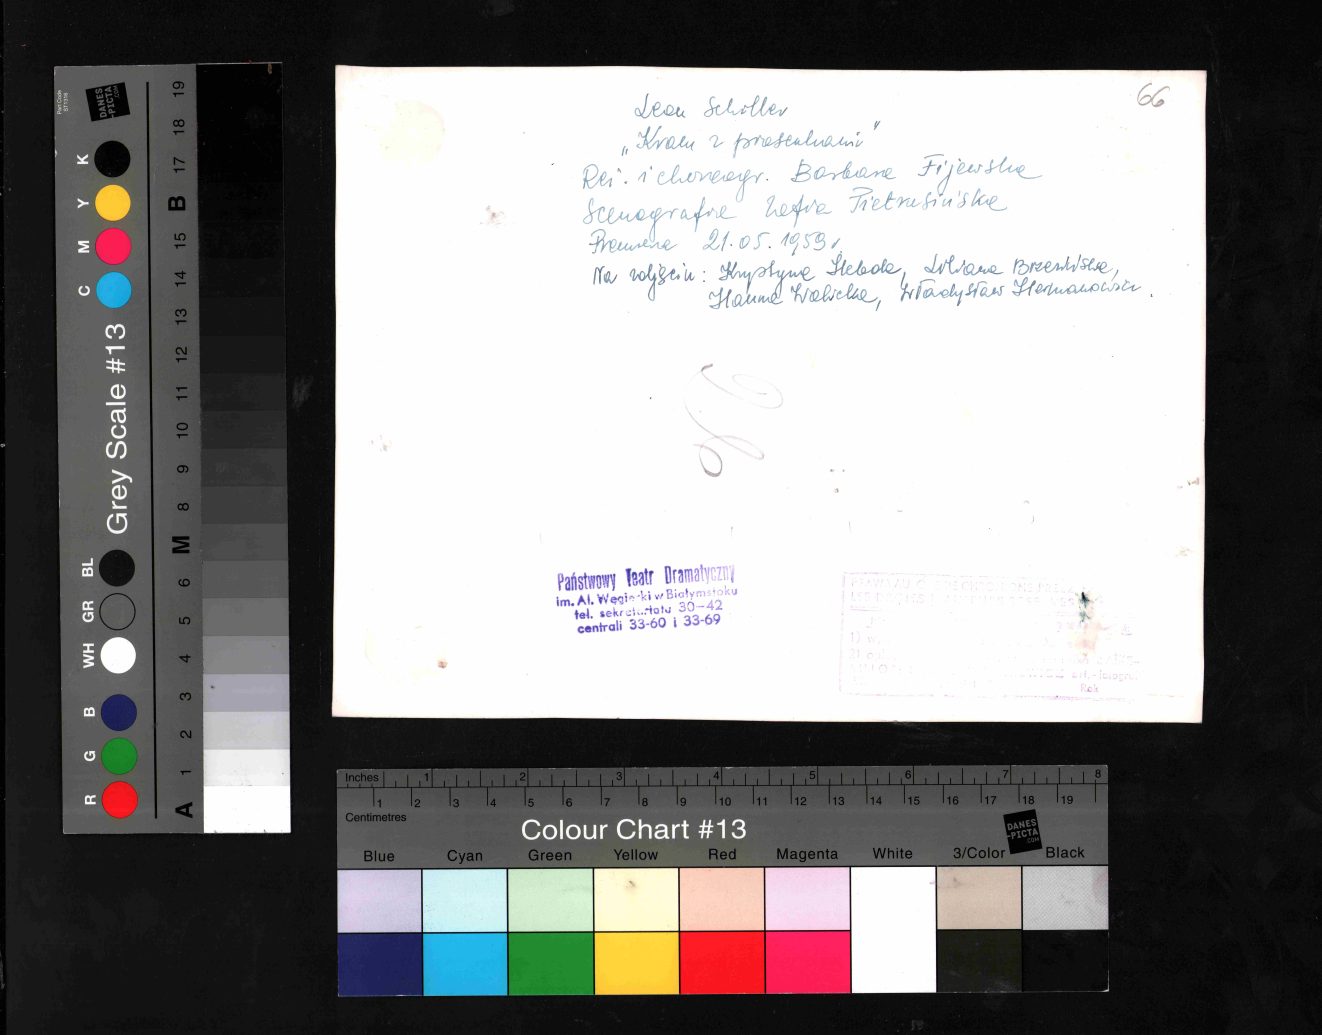 66
Leon Schiller
„Kram z piosenkami"
Reż. i choreogr. Barbara Fijewska
Scenografia Zofia Pietrusińska
Premiera 21.05.1959 r.
Na zdjęciu: Krystyna Hebda, Liliana Brzezińska,
Hanna Walicka, Władysław Hermanowicz.
Państwowy Teatr Dramatyczny
im. Al. Węgierki w Białymstoku
tel. sekretariatu 30-42
centrali 33-60 i 33-69
Rok
Grey Scale #13
DANES
-PICTA
.COM
K
Y
M
C
BL
GR
WH
B
G
R
19
18
17
B
15
14
13
12
11
10
9
8
M
6
5
4
3
2
1
A
Inches 1 2 3 4 5 6 7 8
1 2 3 4 5 6 7 8 9 10 11 12 13 14 15 16 17 18 19
Centimetres
Colour Chart #13
DANES
-PICTA
.COM
Blue Cyan Green Yellow Red Magenta White 3/Color Black